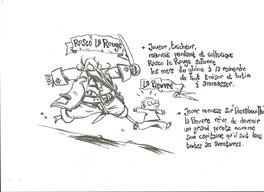 Rosco Le Rouge
La Pieuvre
- Joueur, tricheur,
mauvais perdant et colérique
Rosco le Rouge sillonne
les mers du globe à la recherche
de tout trésor et butin
à ammasser.
- Jeune mousse sur
la Pieuvre rêve de devenir
un grand pirate comme
son capitaine qu'il suit dans
toutes ses aventures.